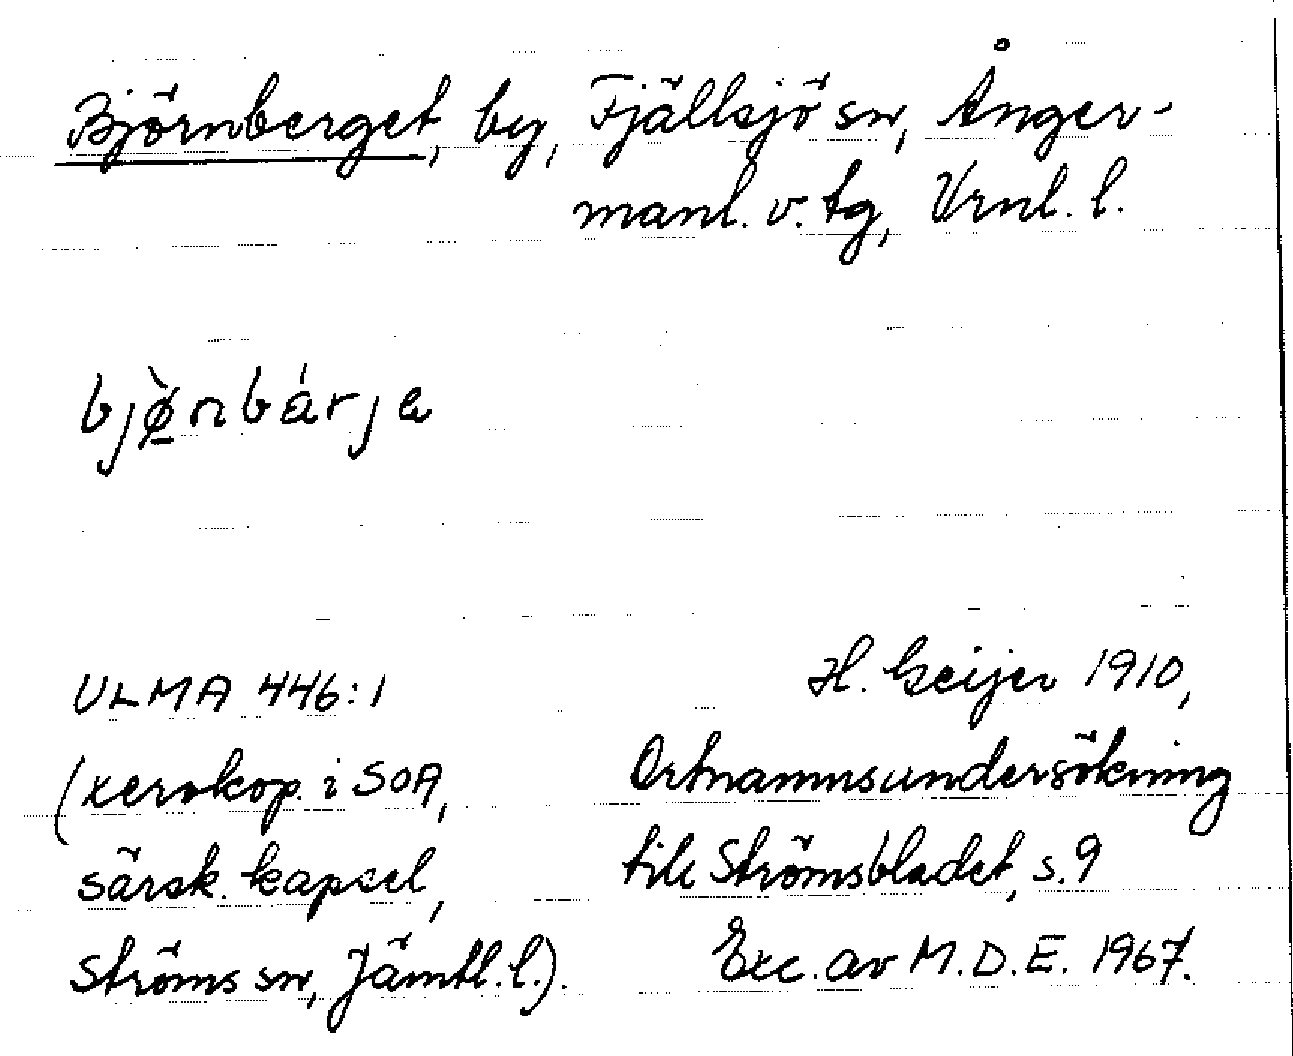 Björnberget, by, Fjällsjö sn, Ånger-
manl. v. tg, Vrnl. l.
bjø̀nbárja
ULMA 446:1
(xerokop. i SOA,
särsk. kapsel,
Ströms sn, Jämtl. l.).
H. Geijer 1910,
Ortnamnsundersökning
till Strömsbladet, s. 9
Exc. av M.D.E. 1967.